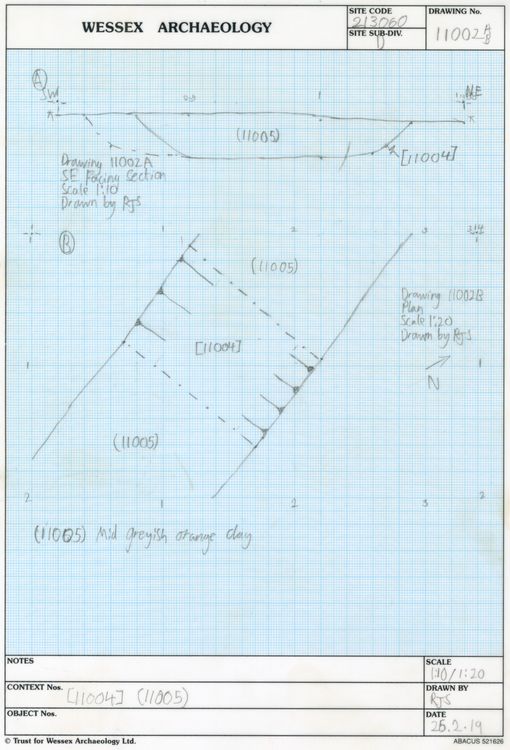 WESSEX ARCHAEOLOGY
SITE CODE
213060
SITE SUB-DIV.
DRAWING No.
11002 A
B
A
SW
NE
0.5
1
(11005)
[11004]
Drawing 11002A
SE Facing Section
Scale 1:10
Drawn by RJS
B
1
2
3
(11005)
Drawing 11002B
Plan
Scale 1:20
Drawn by RJS
[11004]
1
1
N
(11005)
2
1
2
3
2
(11005) Mid greyish orange clay
NOTES
SCALE
1:10/1:20
CONTEXT Nos. [11004] (11005)
DRAWN BY
RJS
OBJECT Nos.
DATE
26.2.19
© Trust for Wessex Archaeology Ltd.
ABACUS 521626